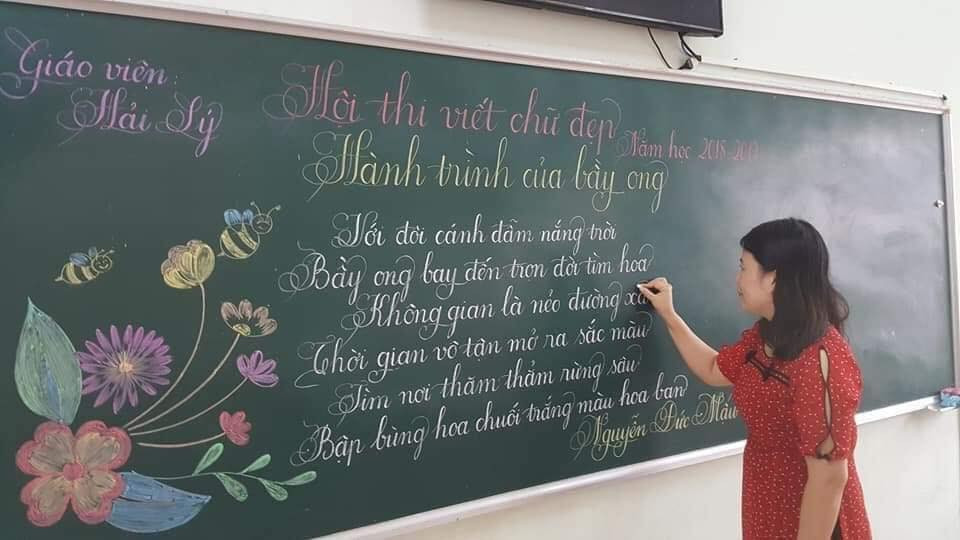 Giáo viên:
Hải Lý
Hội thi viết chữ đẹp
Năm học 2018-2019
Hành trình của bầy ong
Với đôi cánh đẫm nắng trời
Bầy ong bay đến trọn đời tìm hoa
Không gian là nẻo đường xa
Thời gian vô tận mở ra sắc màu
Tìm nơi thăm thẳm rừng sâu
Bập bùng hoa chuối trắng màu hoa ban
Nguyễn Đức Mậu